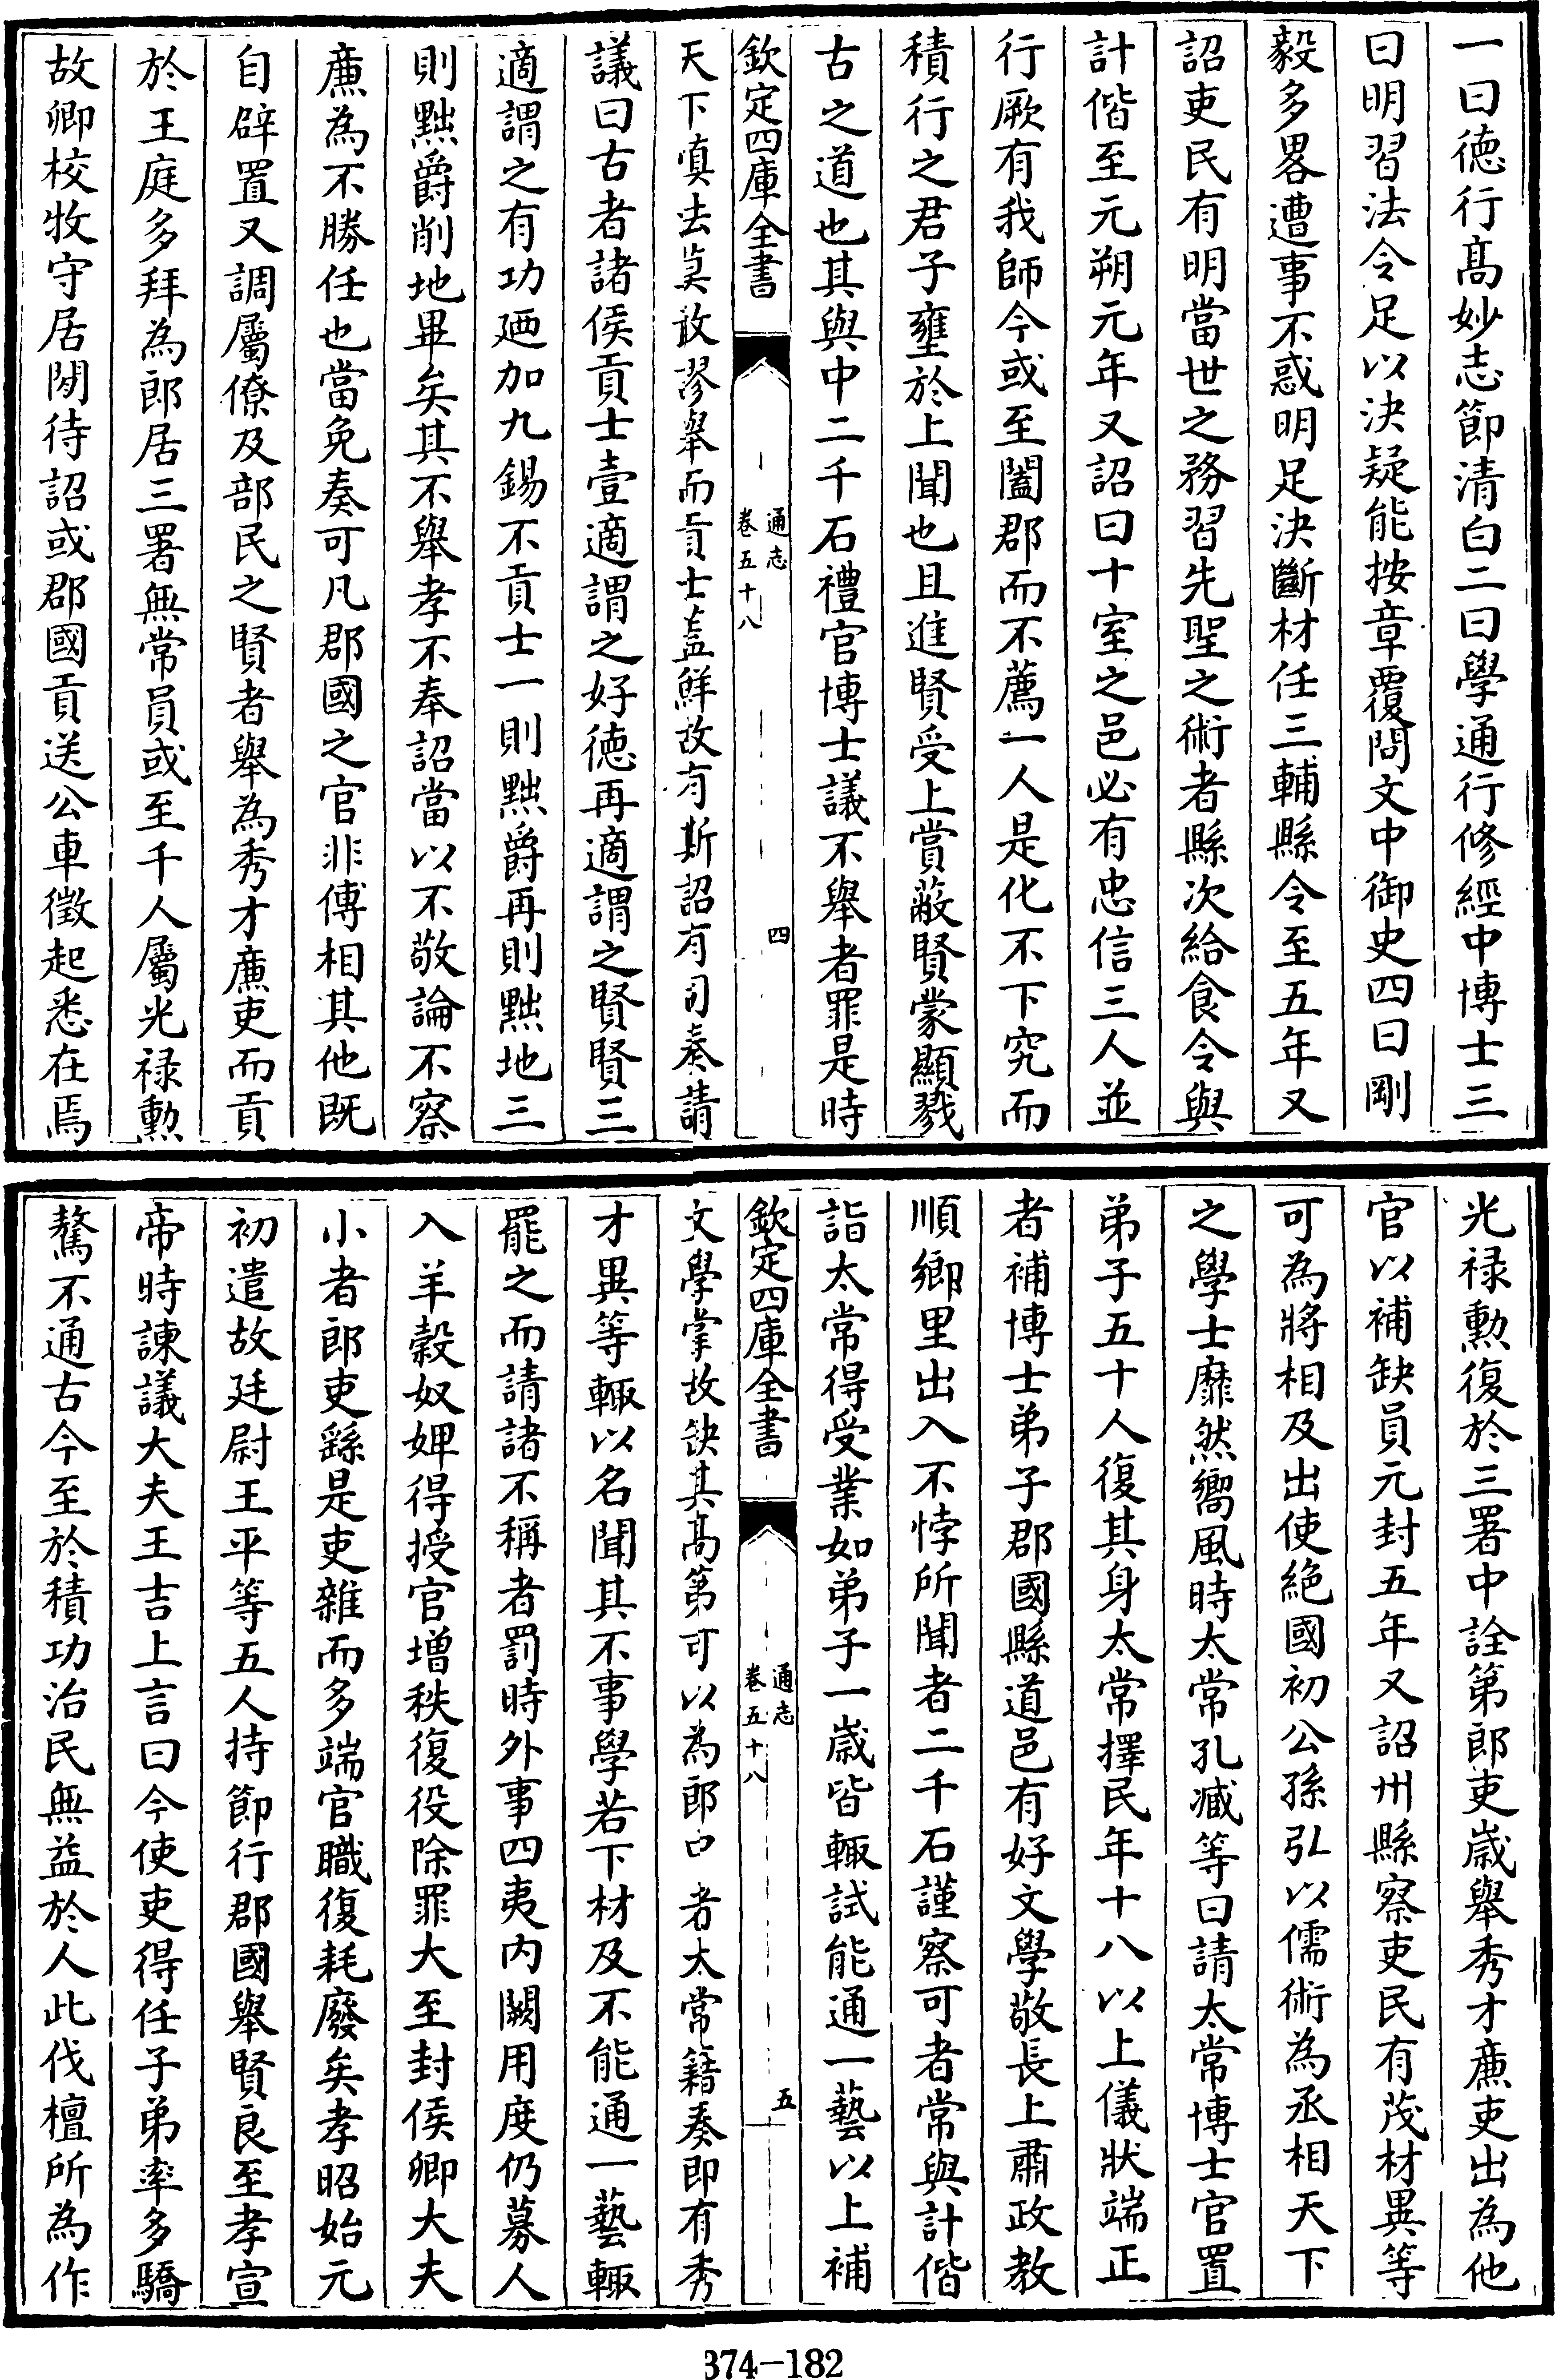 一曰徳行髙妙志節清白二曰學通行修經中博士三
曰明習法令足以決疑能按章覆問文中御史四曰剛
毅多畧遭事不惑明足決斷材任三輔縣令至五年又
詔吏民有明當世之務習先聖之術者縣次給食令與
計偕至元朔元年又詔曰十室之邑必有忠信三人並
行厥有我師今或至闔郡而不薦一人是化不下究而
積行之君子壅於上聞也且進賢受上賞蔽賢蒙顯戮
古之道也其與中二千石禮官博士議不舉者罪是時
欽定四庫全書
通志
卷五十八
四
天下慎法莫敢謬舉而貢士葢鮮故有斯詔有司奏請
議曰古者諸侯貢士壹適謂之好徳再適謂之賢賢三
適謂之有功廼加九錫不貢士一則黜爵再則黜地三
則黜爵削地畢矣其不舉孝不奉詔當以不敬論不察
亷為不勝任也當免奏可凡郡國之官非傅相其他既
自辟置又調屬僚及部民之賢者舉為秀才亷吏而貢
於王庭多拜為郎居三署無常員或至千人屬光禄勲
故卿校牧守居閒待詔或郡國貢送公車徵起悉在焉
光禄勲復於三署中詮第郎吏歲舉秀才亷吏出為他
官以補缺員元封五年又詔州縣察吏民有茂材異等
可為將相及出使絶國初公孫弘以儒術為丞相天下
之學士靡然嚮風時太常孔臧等曰請太常博士官置
弟子五十人復其身太常擇民年十八以上儀狀端正
者補博士弟子郡國縣道邑有好文學敬長上肅政教
順鄉里出入不悖所聞者二千石謹察可者常與計偕
詣太常得受業如弟子一歲皆輒試能通一藝以上補
欽定四庫全書
通志
卷五十八
五
文學掌故缺其髙第可以為郎中者太常籍奏即有秀
才異等輒以名聞其不事學若下材及不能通一藝輒
罷之而請諸不稱者罰時外事四夷内闕用度仍募人
入羊穀奴婢得授官增秩復役除罪大至封侯卿大夫
小者郎吏繇是吏雜而多端官職復耗廢矣孝昭始元
初遣故廷尉王平等五人持節行郡國舉賢良至孝宣
帝時諫議大夫王吉上言曰今使吏得任子弟率多驕
驁不通古今至於積功治民無益於人此伐檀所為作
374-182